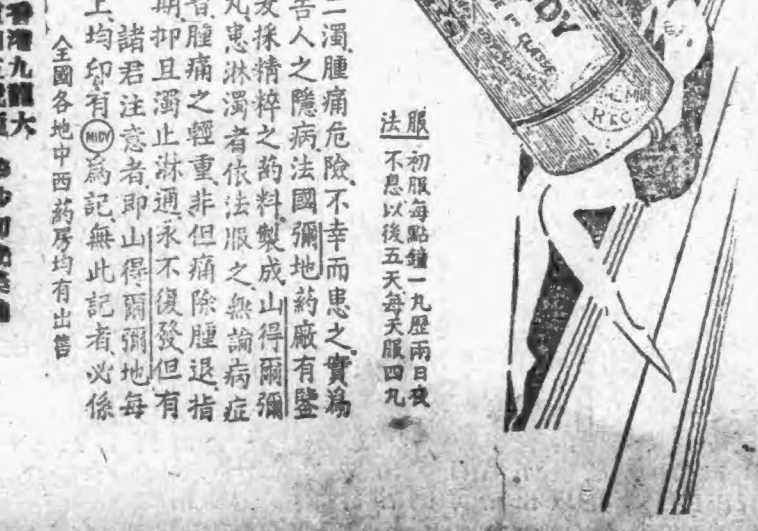 MIDY
1re CLASSE
服法
初服每點鐘一丸歷兩日夜
不息以後五天每天服四丸
二濁腫痛危險不幸而患之實爲
告人之隱病法國彌地药廠有鑒
採精粹之药料製成山得爾彌
丸患淋濁者依法服之無論病症
腫痛之輕重非但痛除腫退指
期抑且濁止淋通永不復發但有
諸君注意者即山得爾彌地每
上均印有MIDY爲記無此記者必係
全國各地中西药房均有出售
香港九龍大